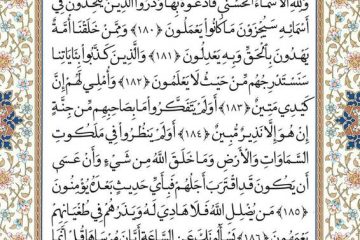 وَلِلَّهِ الْأَسْمَاءُ الْحُسْنَىٰ فَادْعُوهُ بِهَا وَذَرُوا الَّذِينَ يُلْحِدُونَ فِي
أَسْمَائِهِ سَيُجْزَوْنَ مَا كَانُوا يَعْمَلُونَ ﴿١٨٠﴾ وَمِمَّنْ خَلَقْنَا أُمَّةٌ
يَهْدُونَ بِالْحَقِّ وَبِهِ يَعْدِلُونَ ﴿١٨١﴾ وَالَّذِينَ كَذَّبُوا بِآيَاتِنَا
سَنَسْتَدْرِجُهُم مِّنْ حَيْثُ لَا يَعْلَمُونَ ﴿١٨٢﴾ وَأُمْلِي لَهُمْ إِنَّ
كَيْدِي مَتِينٌ ﴿١٨٣﴾ أَوَلَمْ يَتَفَكَّرُوا مَا بِصَاحِبِهِم مِّن جِنَّةٍ
إِنْ هُوَ إِلَّا نَذِيرٌ مُّبِينٌ ﴿١٨٤﴾ أَوَلَمْ يَنظُرُوا فِي مَلَكُوتِ
السَّمَاوَاتِ وَالْأَرْضِ وَمَا خَلَقَ اللَّهُ مِن شَيْءٍ وَأَنْ عَسَىٰ
أَن يَكُونَ قَدِ اقْتَرَبَ أَجَلُهُمْ فَبِأَيِّ حَدِيثٍ بَعْدَهُ يُؤْمِنُونَ
﴿١٨٥﴾ مَن يُضْلِلِ اللَّهُ فَلَا هَادِيَ لَهُ وَيَذَرُهُمْ فِي طُغْيَانِهِمْ
يَعْمَهُونَ ﴿١٨٦﴾ يَسْأَلُونَكَ عَنِ السَّاعَةِ أَيَّانَ مُرْسَاهَا قُلْ إِنَّمَا